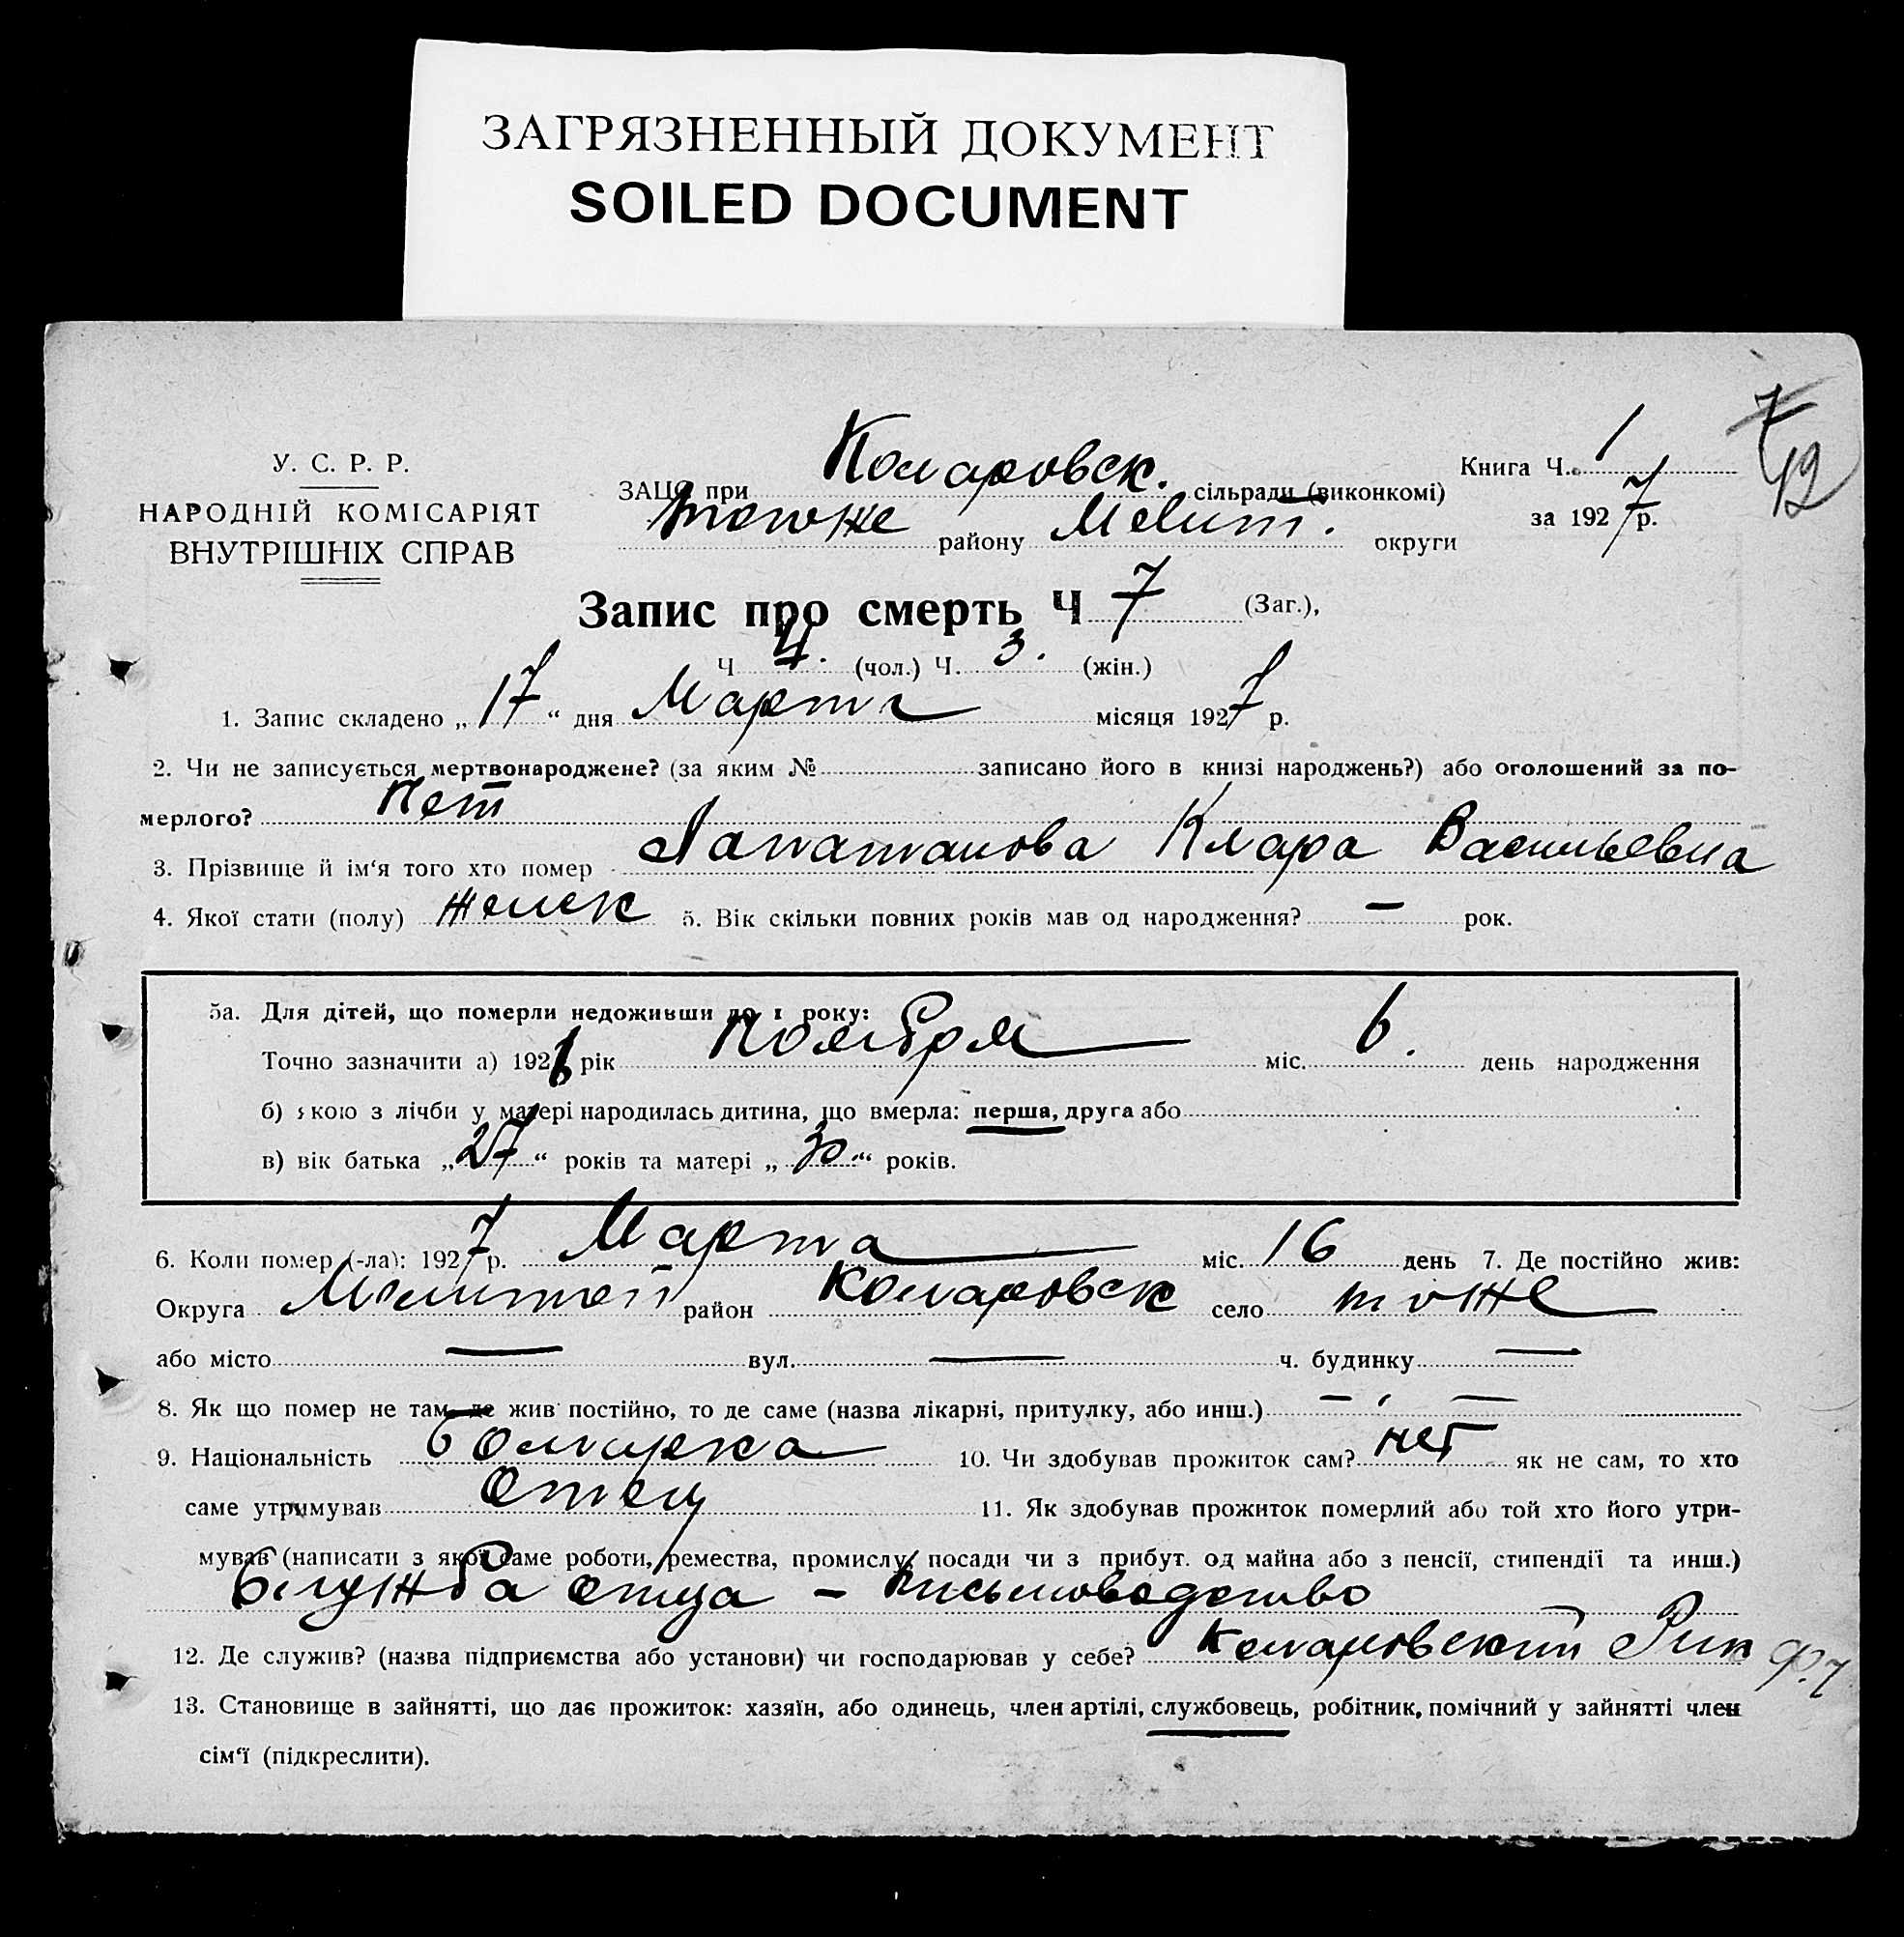 ЗАГРЯЗНЕННЫЙ ДОКУМЕНТ
SOILED DOCUMENT
7
12
У. С. Р. Р.
НАРОДНІЙ КОМІСАРІЯТ
ВНУТРІШНІХ СПРАВ
ЗАЦС при Комаровск. сільради (виконкомі)
тоже району Мелит. округи
Книга Ч. 1
за 1927 р.
Запис про смерть Ч 7 (Заг.),
Ч 4. (чол.) Ч. 3. (жін.)
1. Запис складено „ 17 “ дня Марта місяця 1927 р.
2. Чи не записується мертвонароджене? (за яким № записано його в книзі народжень?) або оголошений за по-
мерлого? Нет
3. Прізвище й ім‘я того хто помер Клара Васильевна
4. Якої стати (полу) женск 5. Вік скільки повних років мав од народження? — рок.
5а. Для дітей, що померли недоживши до 1 року:
Точно зазначити а) 1926 рік Ноября міс. 6. день народження
б) якою з лічби у матері народилась дитина, що вмерла: перша, друга або
в) вік батька „ 27 “ років та матері „ 30 “ років.
6. Коли помер (-ла): 1927 р. Марта міс. 16 день 7. Де постійно жив:
Округа Мелитоп район Комаровск село тоже
або місто — вул. — ч. будинку —
8. Як що помер не там, де жив постійно, то де саме (назва лікарні, притулку, або инш.) — —
9. Національність Болгарка 10. Чи здобував прожиток сам? нет як не сам, то хто
саме утримував Отец 11. Як здобував прожиток померлий або той хто його утри-
мував (написати з якої саме роботи, ремества, промислу, посади чи з прибут. од майна або з пенсії, стипендії та инш.)
Служба отца — письмоводство
12. Де служив? (назва підприємства або установи) чи господарював у себе? Комаровский Рик
13. Становище в зайнятті, що дає прожиток: хазяїн, або одинець, член артілі, службовець, робітник, помічний у зайнятті член
сім‘ї (підкреслити).